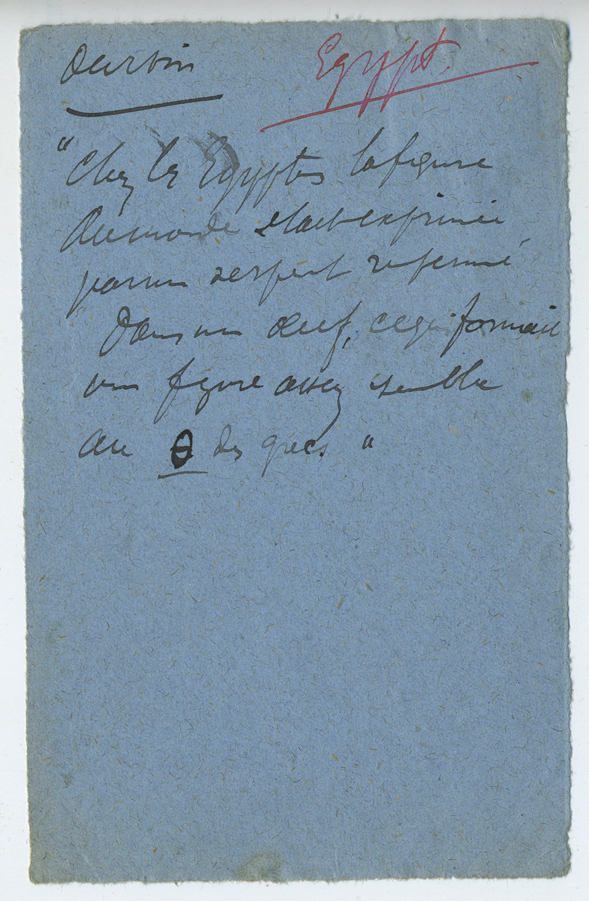 Egypt
"Chez les Egyptes la figure
du monde était exprimée
par un serpent refermé
dans un oeuf, ce qui formait
une figure assez semblable
au θ des grecs "